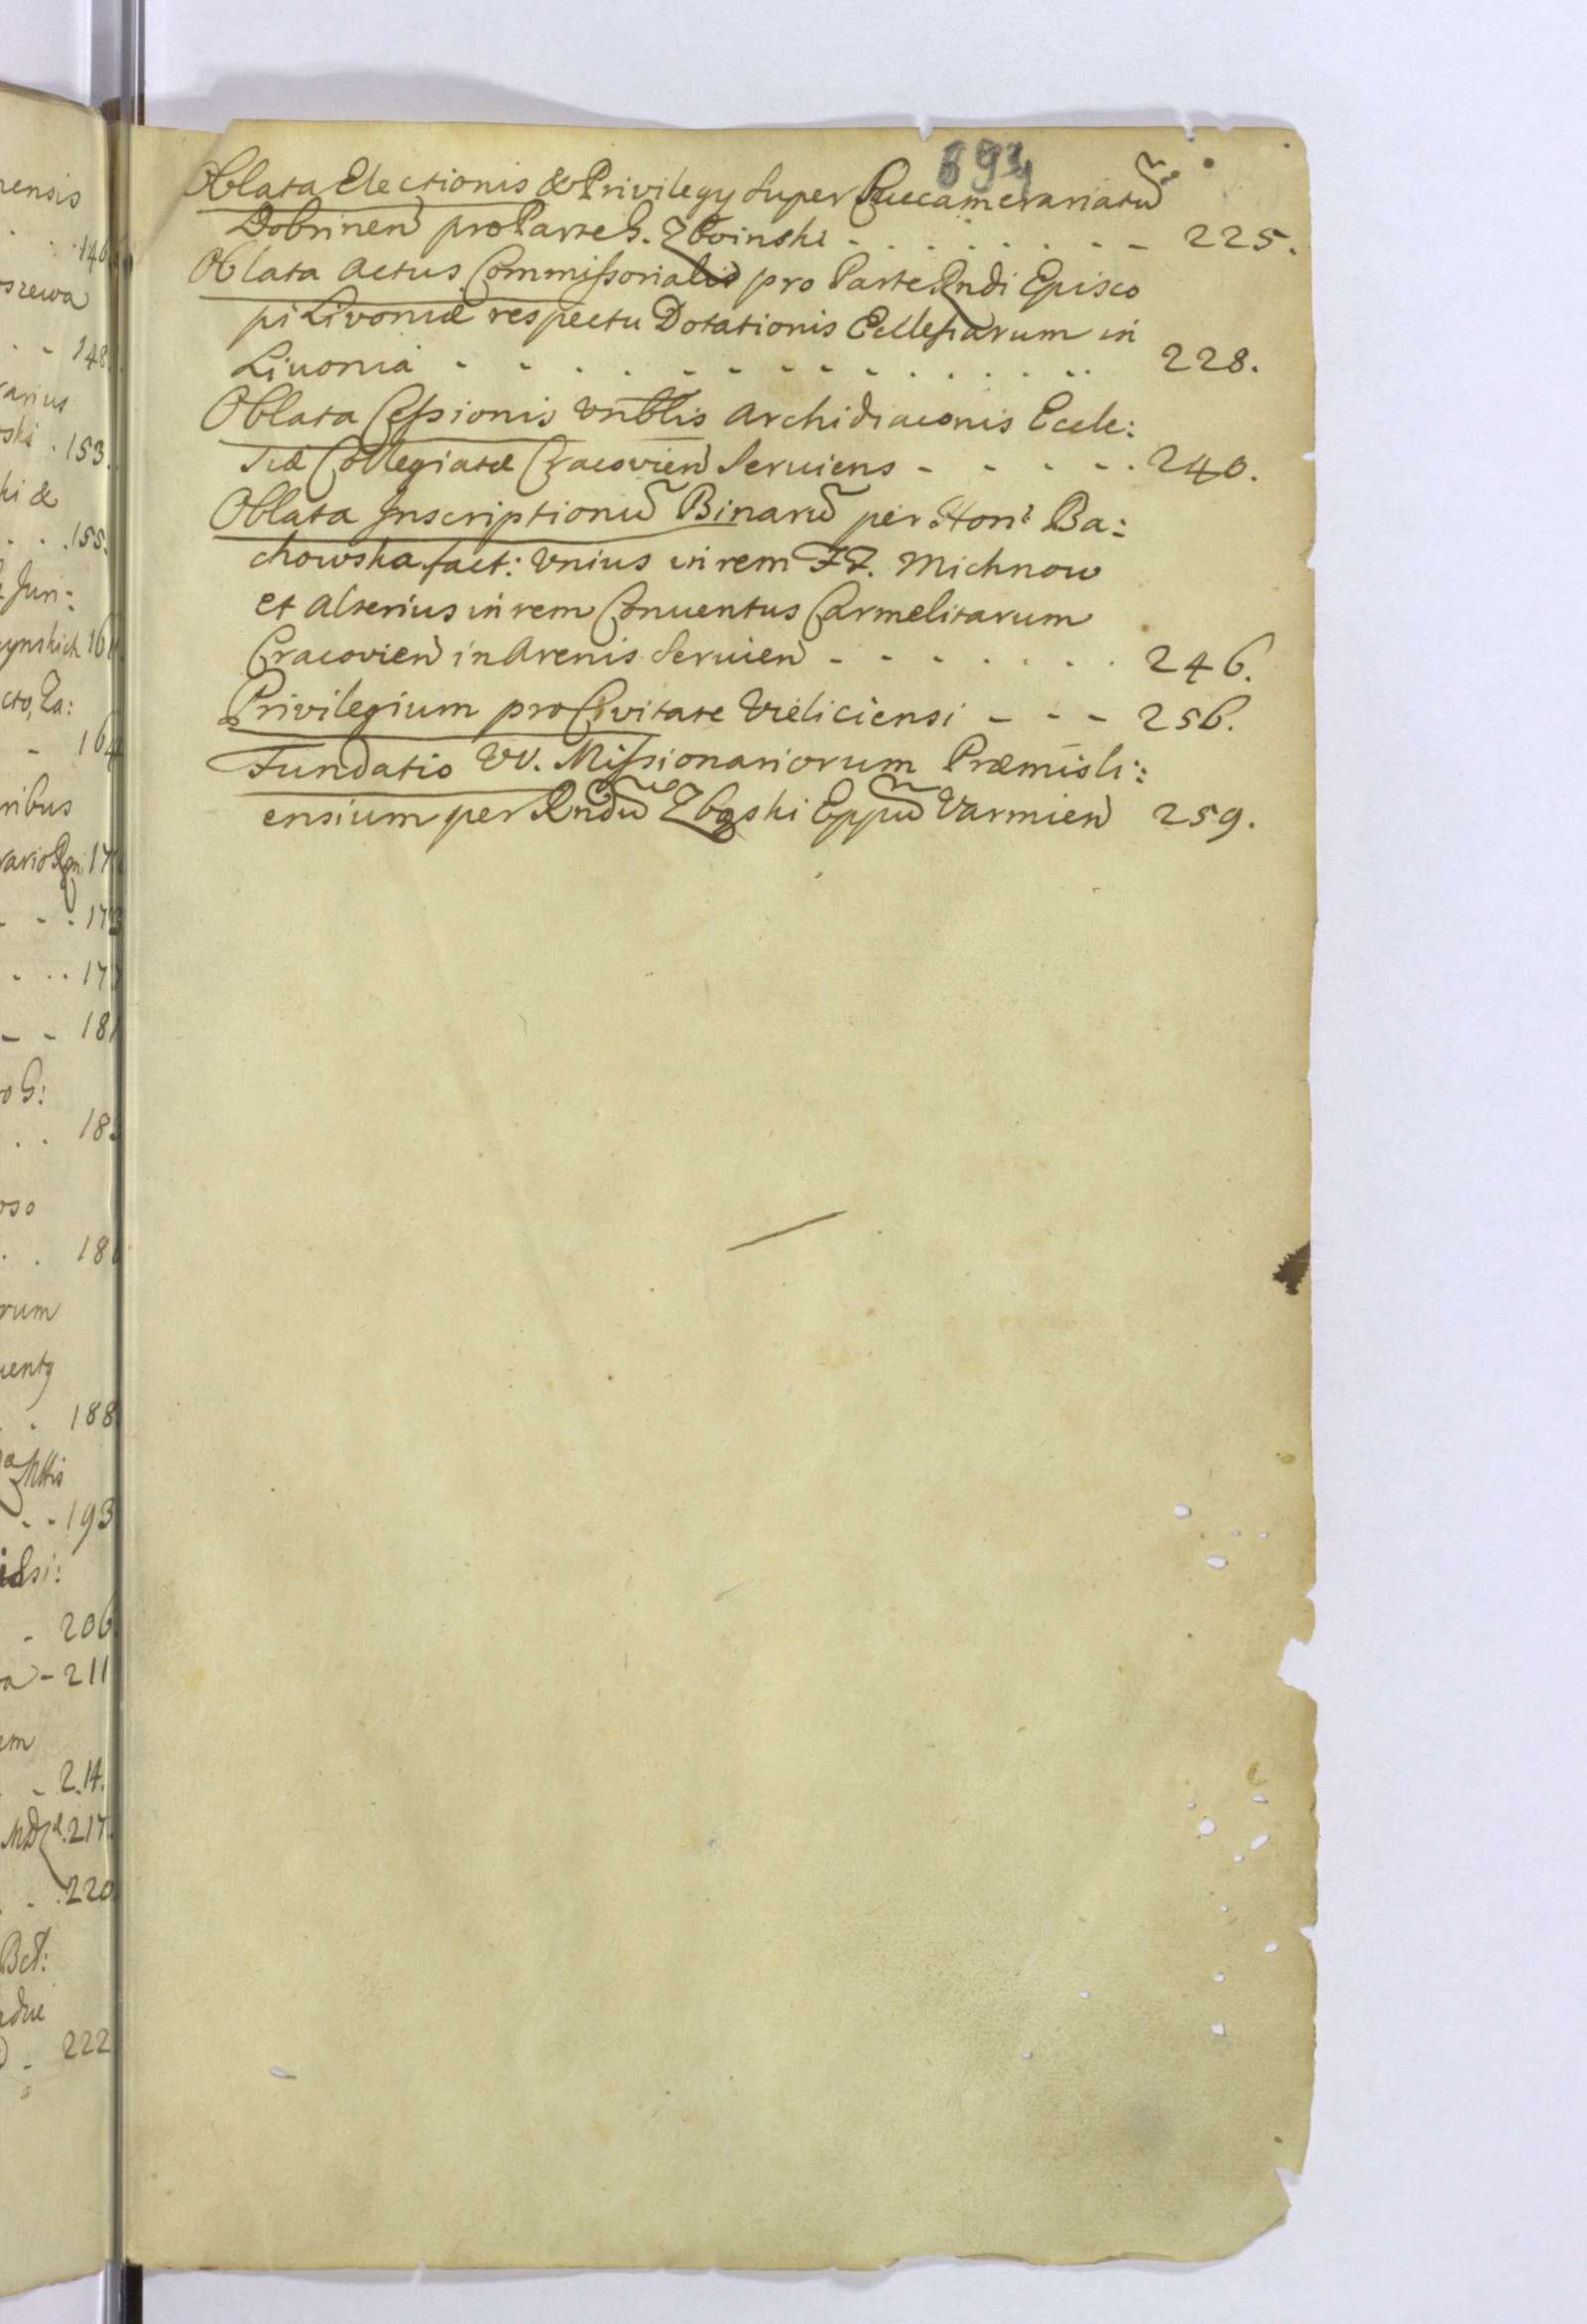 693
Oblata Electionis & Privilegy super Succamerariatu
Dobrinen pro Parte G. Zboinski - - - - - - - - 225.
Oblata Actus Commissorialis pro Parte Rndi Episco
pi Livoniæ respectu Dotationis Ecclesiarum in
Livonia - - - - - - - - - - - - - - 228.
Oblata Cessionis Vnblis Archidiaconis Eccle:
siæ Collegiatæ Cracovien Serviens - - - - - 240.
Oblata Inscriptionu Binaru per Hon: Ba:
chowska fact: Vnius in rem FF. Michnow
et Alterius in rem Conventus Carmelitarum
Cracovien in Arenis Servien - - - - - - - 246.
Privilegium pro Civitate Vieliciensi - - - 256.
Fundatio VV. Missionariorum Præmisli:
ensium per Rndu Zbąski Eppu Varmien 259.
ensis
146
szewa
- - 148
arius
ski . 153.
ki &
. . . 155.
Jun:
zynskich 161
cto, Za:
- 164
ribus
- - . 173
. . . 177
- - 181
o G:
oso
rum
. . 188
- - 193
- 206
a - 211
em
- 214.
217.
. . 220
Bct:
- 222